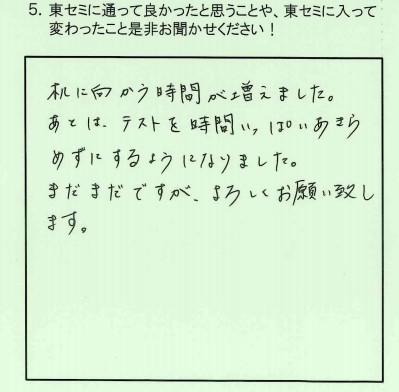 5. 東セミに通って良かったと思うことや、東セミに入って
変わったこと是非お聞かせください！
机に向かう時間が増えました。
あとは、テストを時間いっぱいあきら
めずにするようになりました。
まだまだですが、よろしくお願い致し
ます。